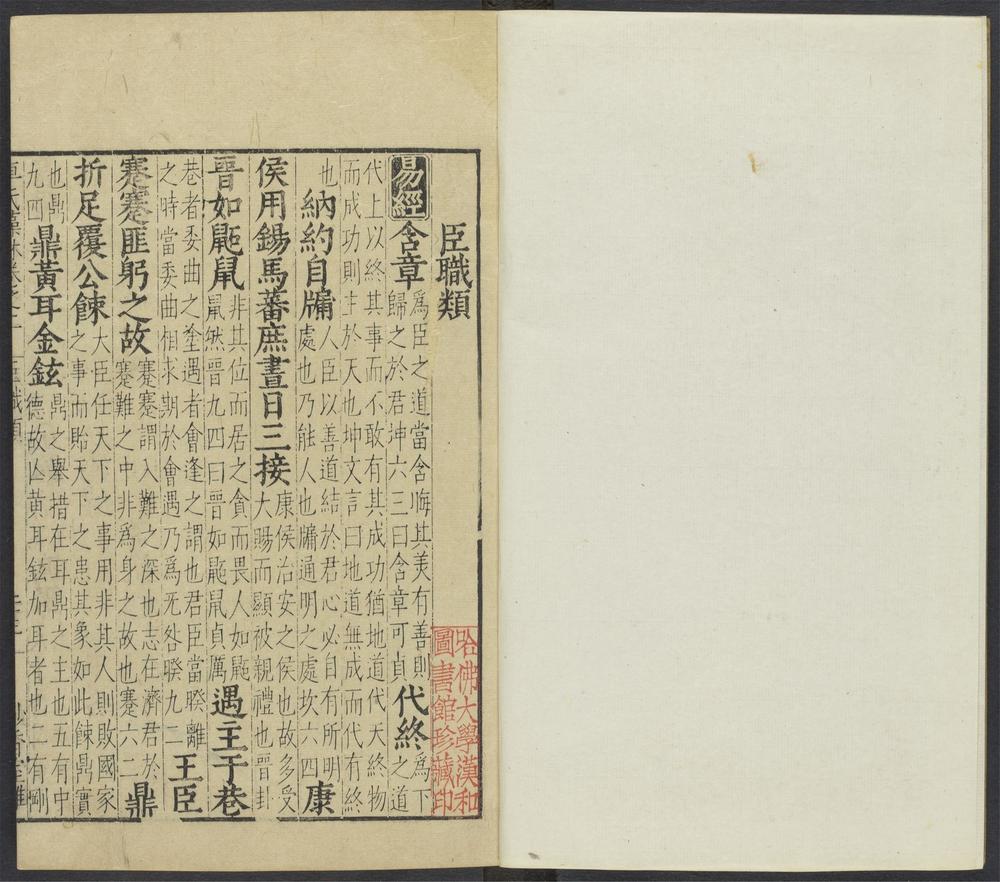 臣職類
易經
含章
爲臣之道當含晦其美有善則
歸之於君坤六三曰含章可貞
代終
爲下
之道
代上以終其事而不敢有其成功猶地道代天終物
而成功則主於天也坤文言曰地道無成而代有終
也
納約自牖
人臣以善道結於君心必自有所明
處也乃能入也牖通明之處坎六四
康
侯用錫馬蕃庶晝日三接
康侯治安之侯也故多受
大賜而顯被親禮也晉卦
晉如鼫鼠
非其位而居之貪而畏人如鼫
鼠然晉九四曰晉如鼫鼠貞厲
遇主于巷
巷者委曲之塗遇者會逢之謂也君臣當睽離
之時當委曲相求期於會遇乃爲无咎睽九二
王臣
蹇蹇匪躬之故
蹇蹇謂入難之深也志在濟君於
蹇難之中非爲身之故也蹇六二
鼎
折足覆公餗
大臣任天下之事用非其人則敗國家
之事而貽天下之患其象如此餗鼎實
也鼎
九四
鼎黃耳金鉉
鼎之舉措在耳鼎之主也五有中
德故亾黃耳鉉加耳者也二有剛
哈佛大學漢和
圖書館珍藏印